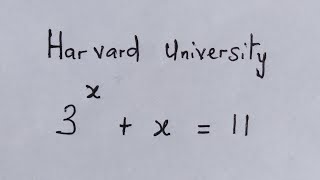 Harvard University
3ˣ + x = 11